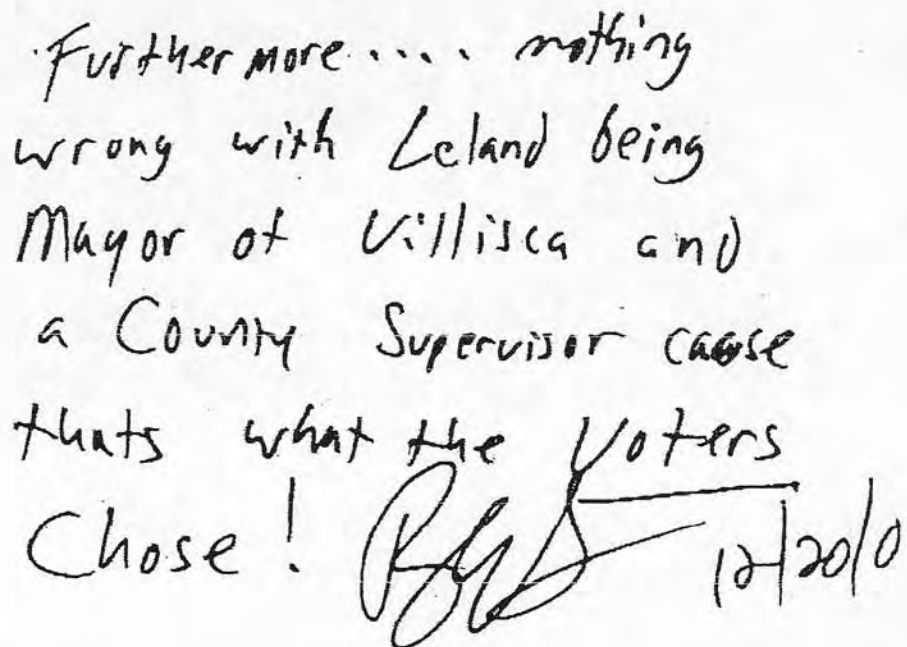 Furthermore.... nothing
wrong with Leland being
Mayor of Villisca and
a County Supervisor cause
thats what the Voters
Chose! 12/20/0